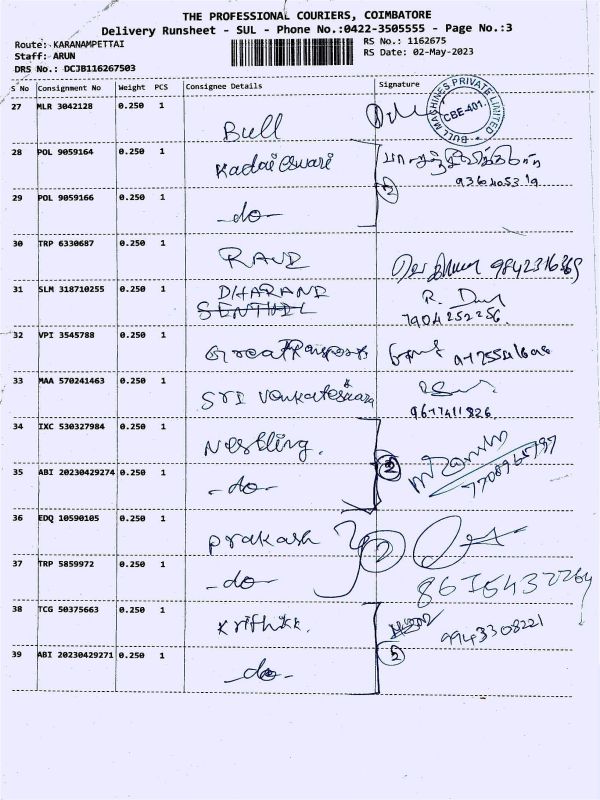 THE PROFESSIONAL COURIERS, COIMBATORE
Delivery Runsheet - SUL - Phone No.:0422-3505555 - Page No.:3
Route: KARANAMPETTAI RS No.: 1162675
Staff: ARUN RS Date: 02-May-2023
DRS No.: DCJB116267503
S No Consignment No Weight PCS Consignee Details Signature
27 MLR 3042128 0.250 1 Bull
BULL MACHINES PRIVATE LIMITED
CBE-401.
28 POL 9059164 0.250 1 Kadaieswari
2
29 POL 9059166 0.250 1 -do-
30 TRP 6330687 0.250 1 9842316365
31 SLM 318710255 0.250 1 DHARANI
SENTHIL R.
7904252256.
32 VPI 3545788 0.250 1
33 MAA 570241463 0.250 1 SRI Venkateswara
34 IXC 530327984 0.250 1 Nestling.
2
35 ABI 20230429274 0.250 1 -do- 7708965797
36 EDQ 10590105 0.250 1 prakash
2
37 TRP 5859972 0.250 1 -do-
38 TCG 50375663 0.250 1 Krithik. 9943308221
39 ABI 20230429271 0.250 1 -do-